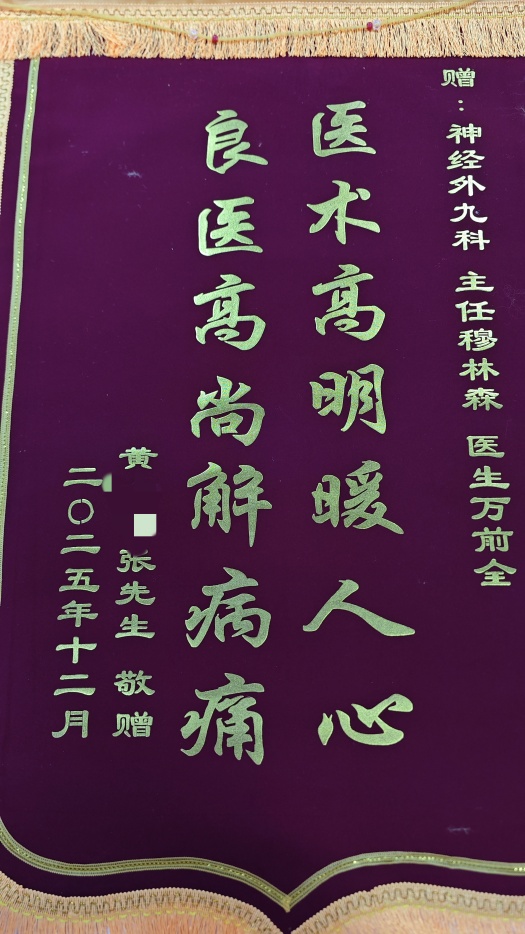 赠：神经外九科 主任穆林森 医生万前全
医术高明暖人心
良医高尚解病痛
黄 张先生 敬赠
二〇二五年十二月